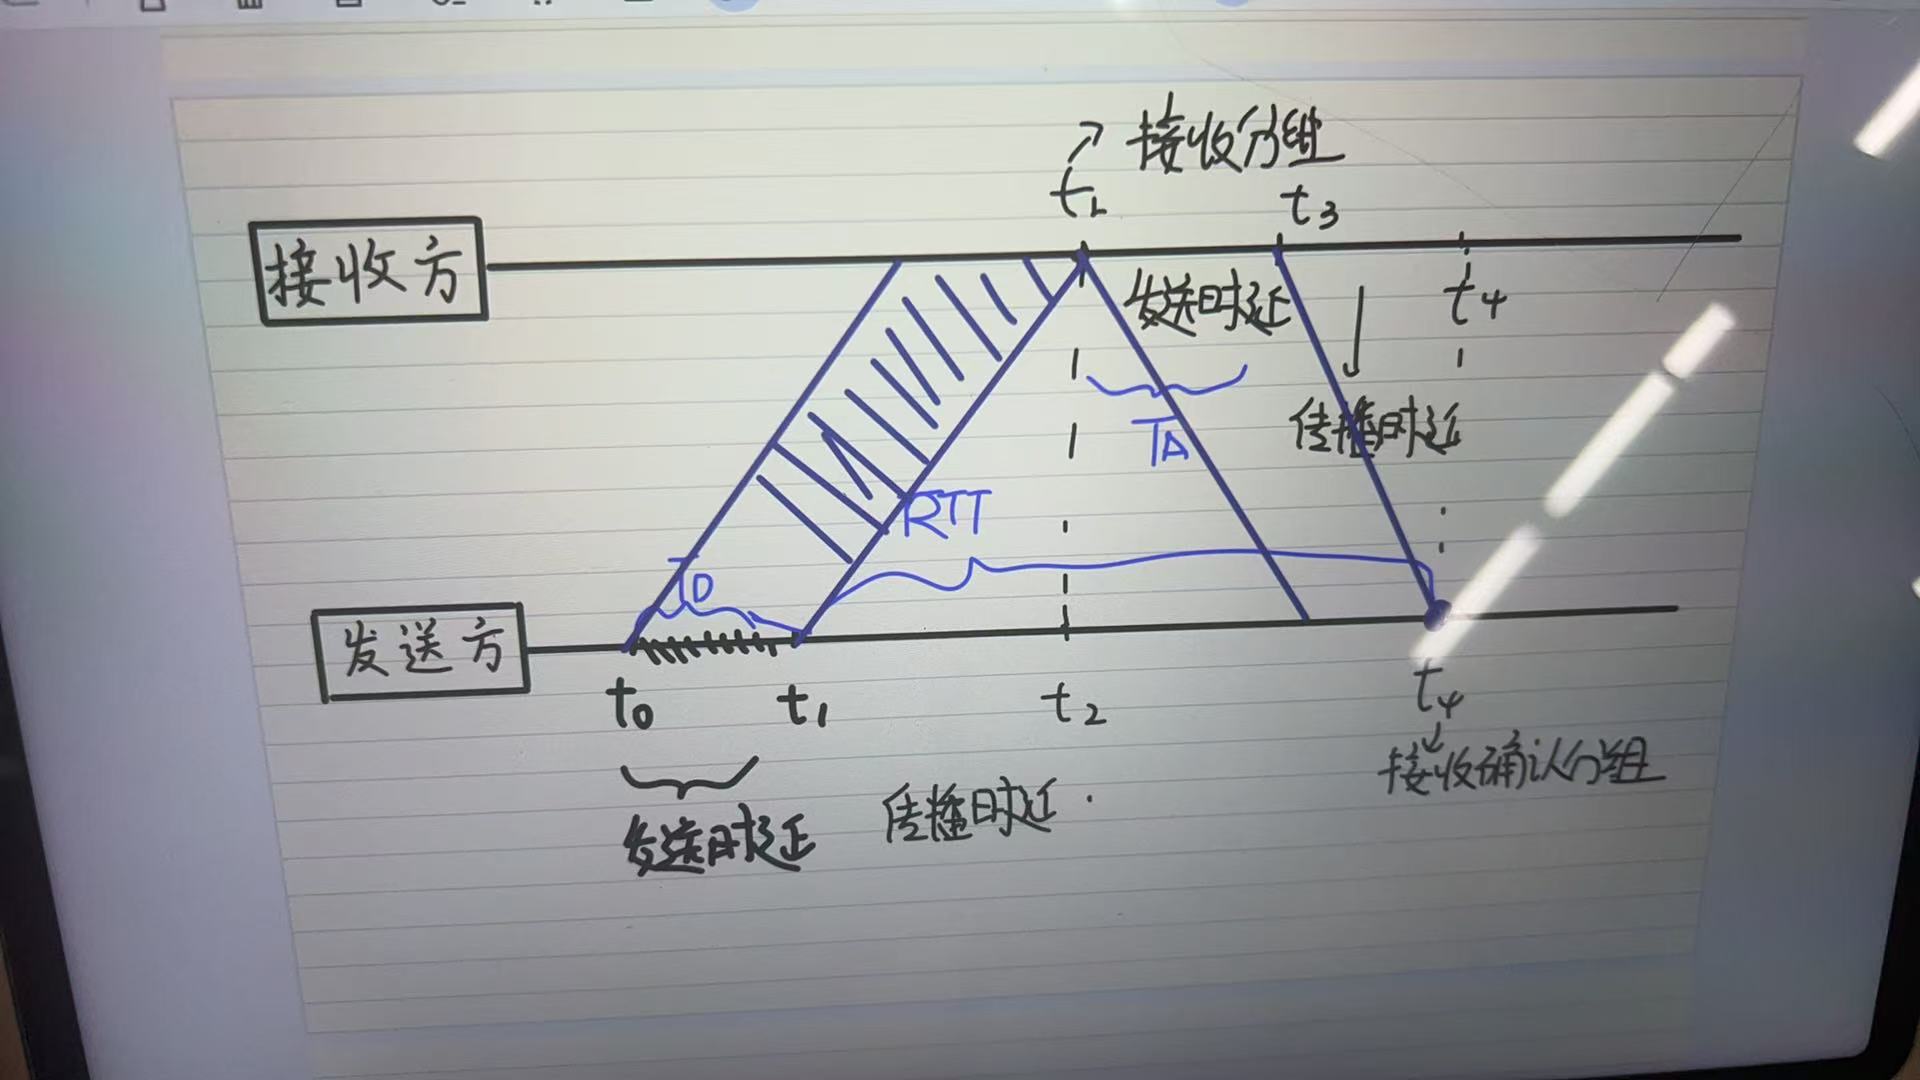 接收分组
t2
t3
接收方
发送时延
t4
传播时延
TA
RTT
TD
发送方
t0
t1
t2
t4
接收确认分组
发送时延
传播时延